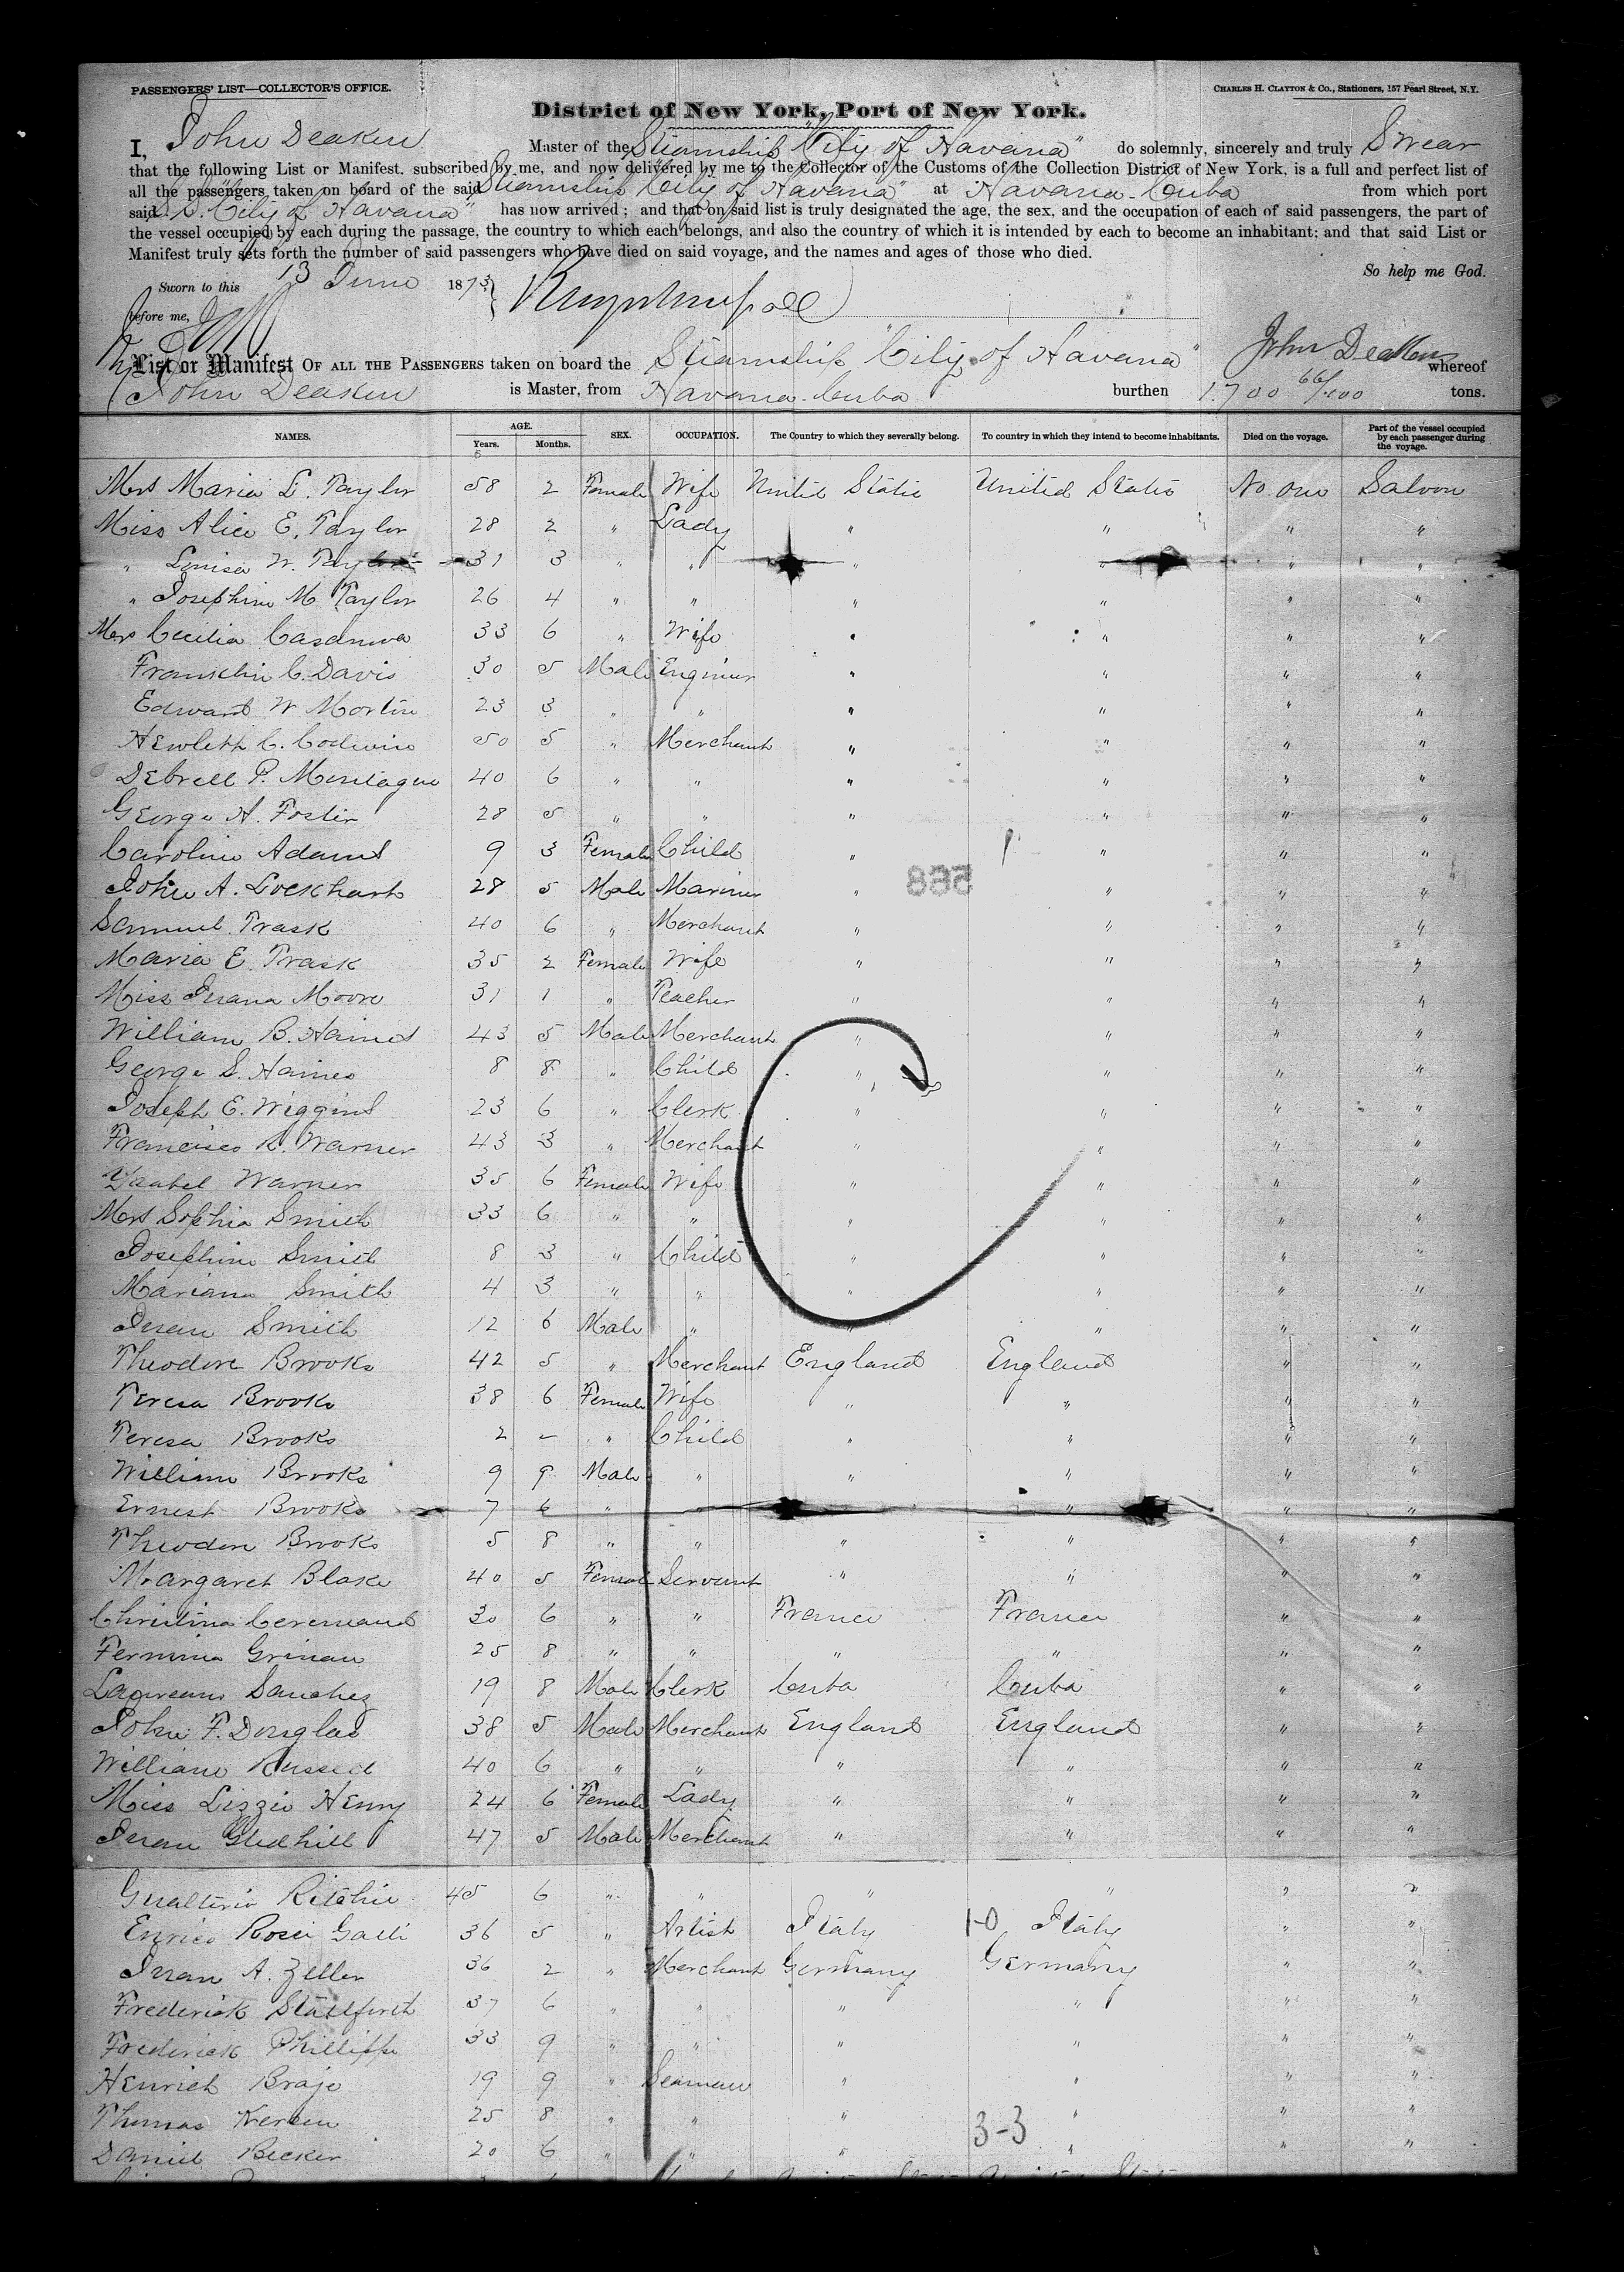 PASSENGERS' LIST—COLLECTOR'S OFFICE.
CHARLES H. CLAYTON & Co., Stationers, 157 Pearl Street, N.Y.
District of New York, Port of New York.
I, John Deaken Master of the Steamship "City of Havana" do solemnly, sincerely and truly Swear
that the following List or Manifest, subscribed by me, and now delivered by me to the Collector of the Customs of the Collection District of New York, is a full and perfect list of
all the passengers taken on board of the said Steamship "City of Havana" at Havana Cuba from which port
said S.S. "City of Havana" has now arrived; and that on said list is truly designated the age, the sex, and the occupation of each of said passengers, the part of
the vessel occupied by each during the passage, the country to which each belongs, and also the country of which it is intended by each to become an inhabitant; and that said List or
Manifest truly sets forth the number of said passengers who have died on said voyage, and the names and ages of those who died.
So help me God.
Sworn to this 13 June 1873
before me,
John Deaken
List or Manifest OF ALL THE PASSENGERS taken on board the Steamship "City of Havana" whereof
John Deaken is Master, from Havana Cuba burthen 1.700 66/100 tons.
NAMES. AGE. Years. Months. SEX. OCCUPATION. The Country to which they severally belong. To country in which they intend to become inhabitants. Died on the voyage. Part of the vessel occupied by each passenger during the voyage.
Mrs Maria L. Taylor 58 2 Female Wife United States United States No one Saloon
Miss Alice E. Taylor 28 2 " Lady " " " "
" Louisa W. Taylor 31 3 " " " " " "
" Josephine M Taylor 26 4 " " " " " "
Mrs Cecilia Casanova 33 6 " Wife " " " "
Franklin C. Davis 30 5 Male Engineer " " " "
Edward W Martin 23 3 " " " " " "
Hewlett C. Codwin 50 5 " Merchant " " " "
Debrell P. Montague 40 6 " " " " " "
George H. Foster 28 5 " " " " " "
Caroline Adams 9 3 Female Child " " " "
568
John A. Lockhart 28 5 Male Mariner " " " "
Samuel Trask 40 6 " Merchant " " " "
Maria E. Trask 35 2 Female Wife " " " "
Miss Juana Moore 31 1 " Teacher " " " "
William B. Haines 43 5 Male Merchant " " " "
George S. Haines 8 8 " Child " " " "
Joseph E. Wiggins 23 6 " Clerk " " " "
Francisco R. Warner 43 3 " Merchant " " " "
Ysabel Warner 35 6 Female Wife " " " "
Mrs Sophia Smith 33 6 " " " " " "
Josephine Smith 8 3 " Child " " " "
Mariana Smith 4 3 " " " " " "
Juan Smith 12 6 Male " " " " "
Theodore Brooks 42 5 " Merchant England England " "
Teresa Brooks 38 6 Female Wife " " " "
Teresa Brooks 2 – " Child " " " "
William Brooks 9 9 Male " " " " "
Ernest Brooks 7 6 " " " " " "
Theodore Brooks 5 8 " " " " " "
Margaret Blake 40 5 Female Servant " " " "
Christina 30 6 " " France France " "
Fermina Grinau 25 8 " " " " " "
Laureano Sanchez 19 8 Male Clerk Cuba Cuba " "
John F. Douglas 38 5 Male Merchant England England " "
William Russell 40 6 " " " " " "
Miss Lizzie Henry 24 6 Female Lady " " " "
Juan Gledhill 47 5 Male Merchant " " " "
Gualterio Ritchie 45 6 " " " " " "
Enrico Rosei Galli 36 5 " Artist Italy 1-0 Italy " "
Juan A. Zeller 36 2 " Merchant Germany Germany " "
Frederick Stallforth 37 6 " " " " " "
Frederick Phillipps 33 9 " " " " " "
Henrich Braje 19 9 " Seaman " " " "
Thomas Kersen 25 8 " " " " " "
3-3
Daniel Becker 20 6 " " " " " "